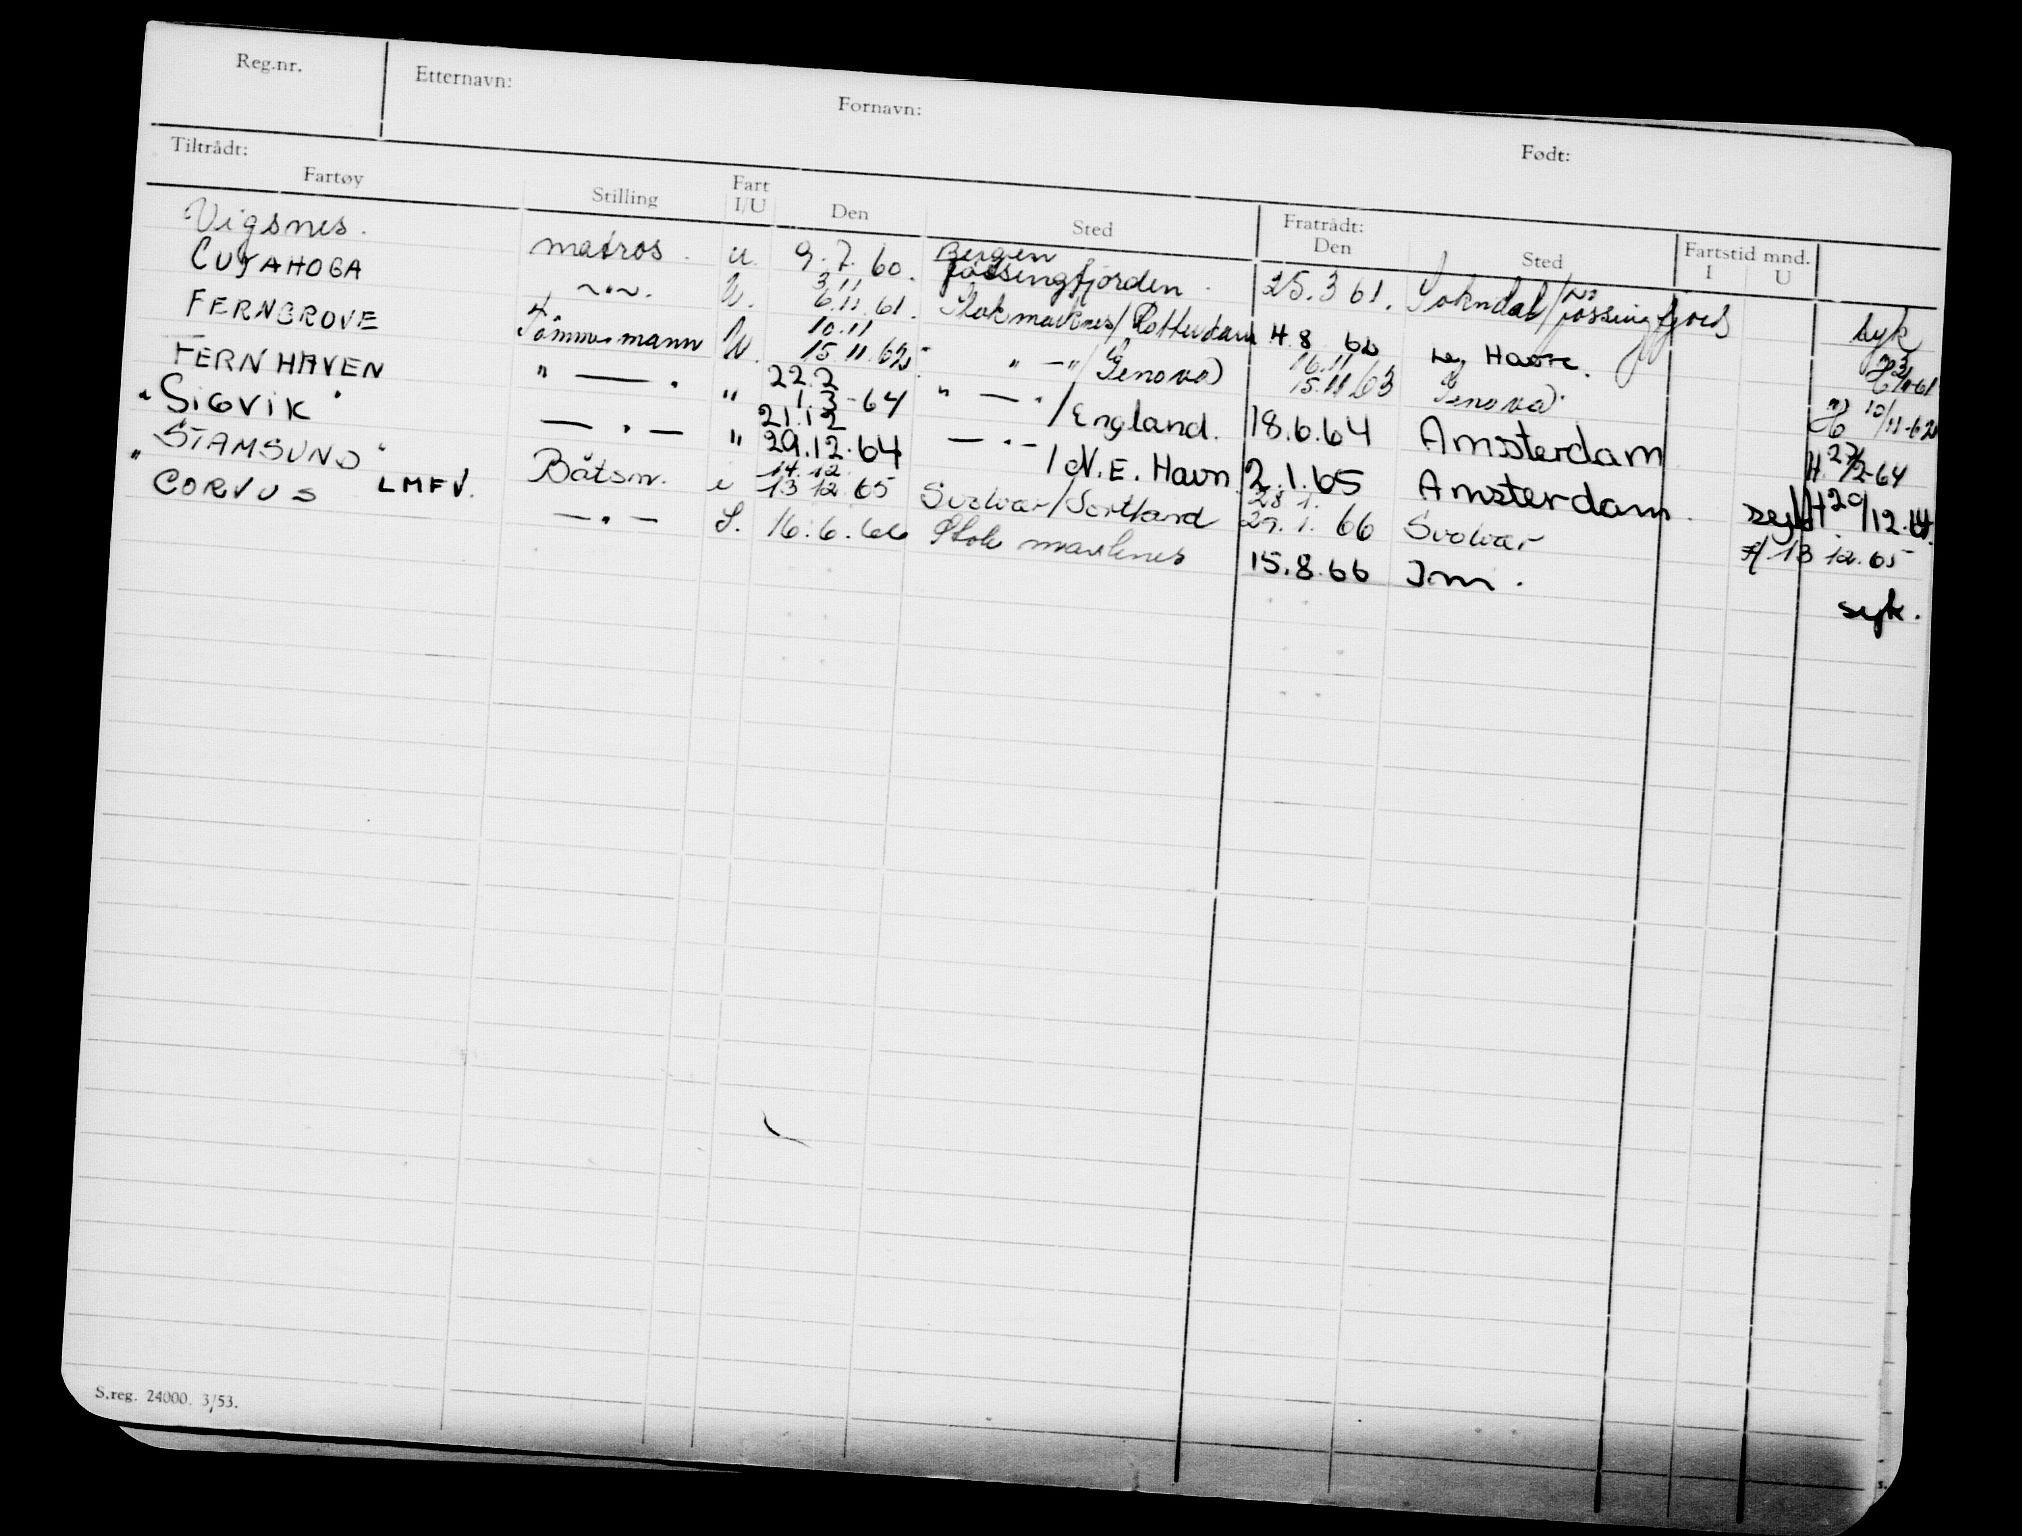 Reg.nr. Etternavn: Fornavn: Født:
Tiltrådt: Fratrådt: Fartstid mnd.
Fartøy Stilling Fart I/U Den Sted Den Sted I U
Vigsnes. matros. u. 9.7.60. Bergen 25.3 61. Sokndal/ jøssingfjord syk
jøssingfjorden
CUYAHOGA -"-. U. 3.11 6.11.61. Stokmarknes/Rotterdam 4.8 62 Le Havre.
FERNGROVE Tømmermann U. 10.11 15.11.62 " -"/Genova 16.11 15.11/63 Genova 10/11-62
FERNHAVEN " — . " 22.2 1.3-64 " — "/England. 18.6.64 Amsterdam H. 27/2-64
"SIGVIK" — " — " 21.12 29.12.64 — " — /N.E. Havn 2.1.65 Amsterdam. H 29/12.64.
"STAMSUND" Båtsm. i 14.12. 13 12.65 Svolvær/Sortland 28 1. 29. 1. 66 Svolvær 13 12.65
CORVUS LMFV. — " — S. 16.6.66 Stokmarknes 15.8.66 Im. syk.
S.reg. 24000. 3/53.